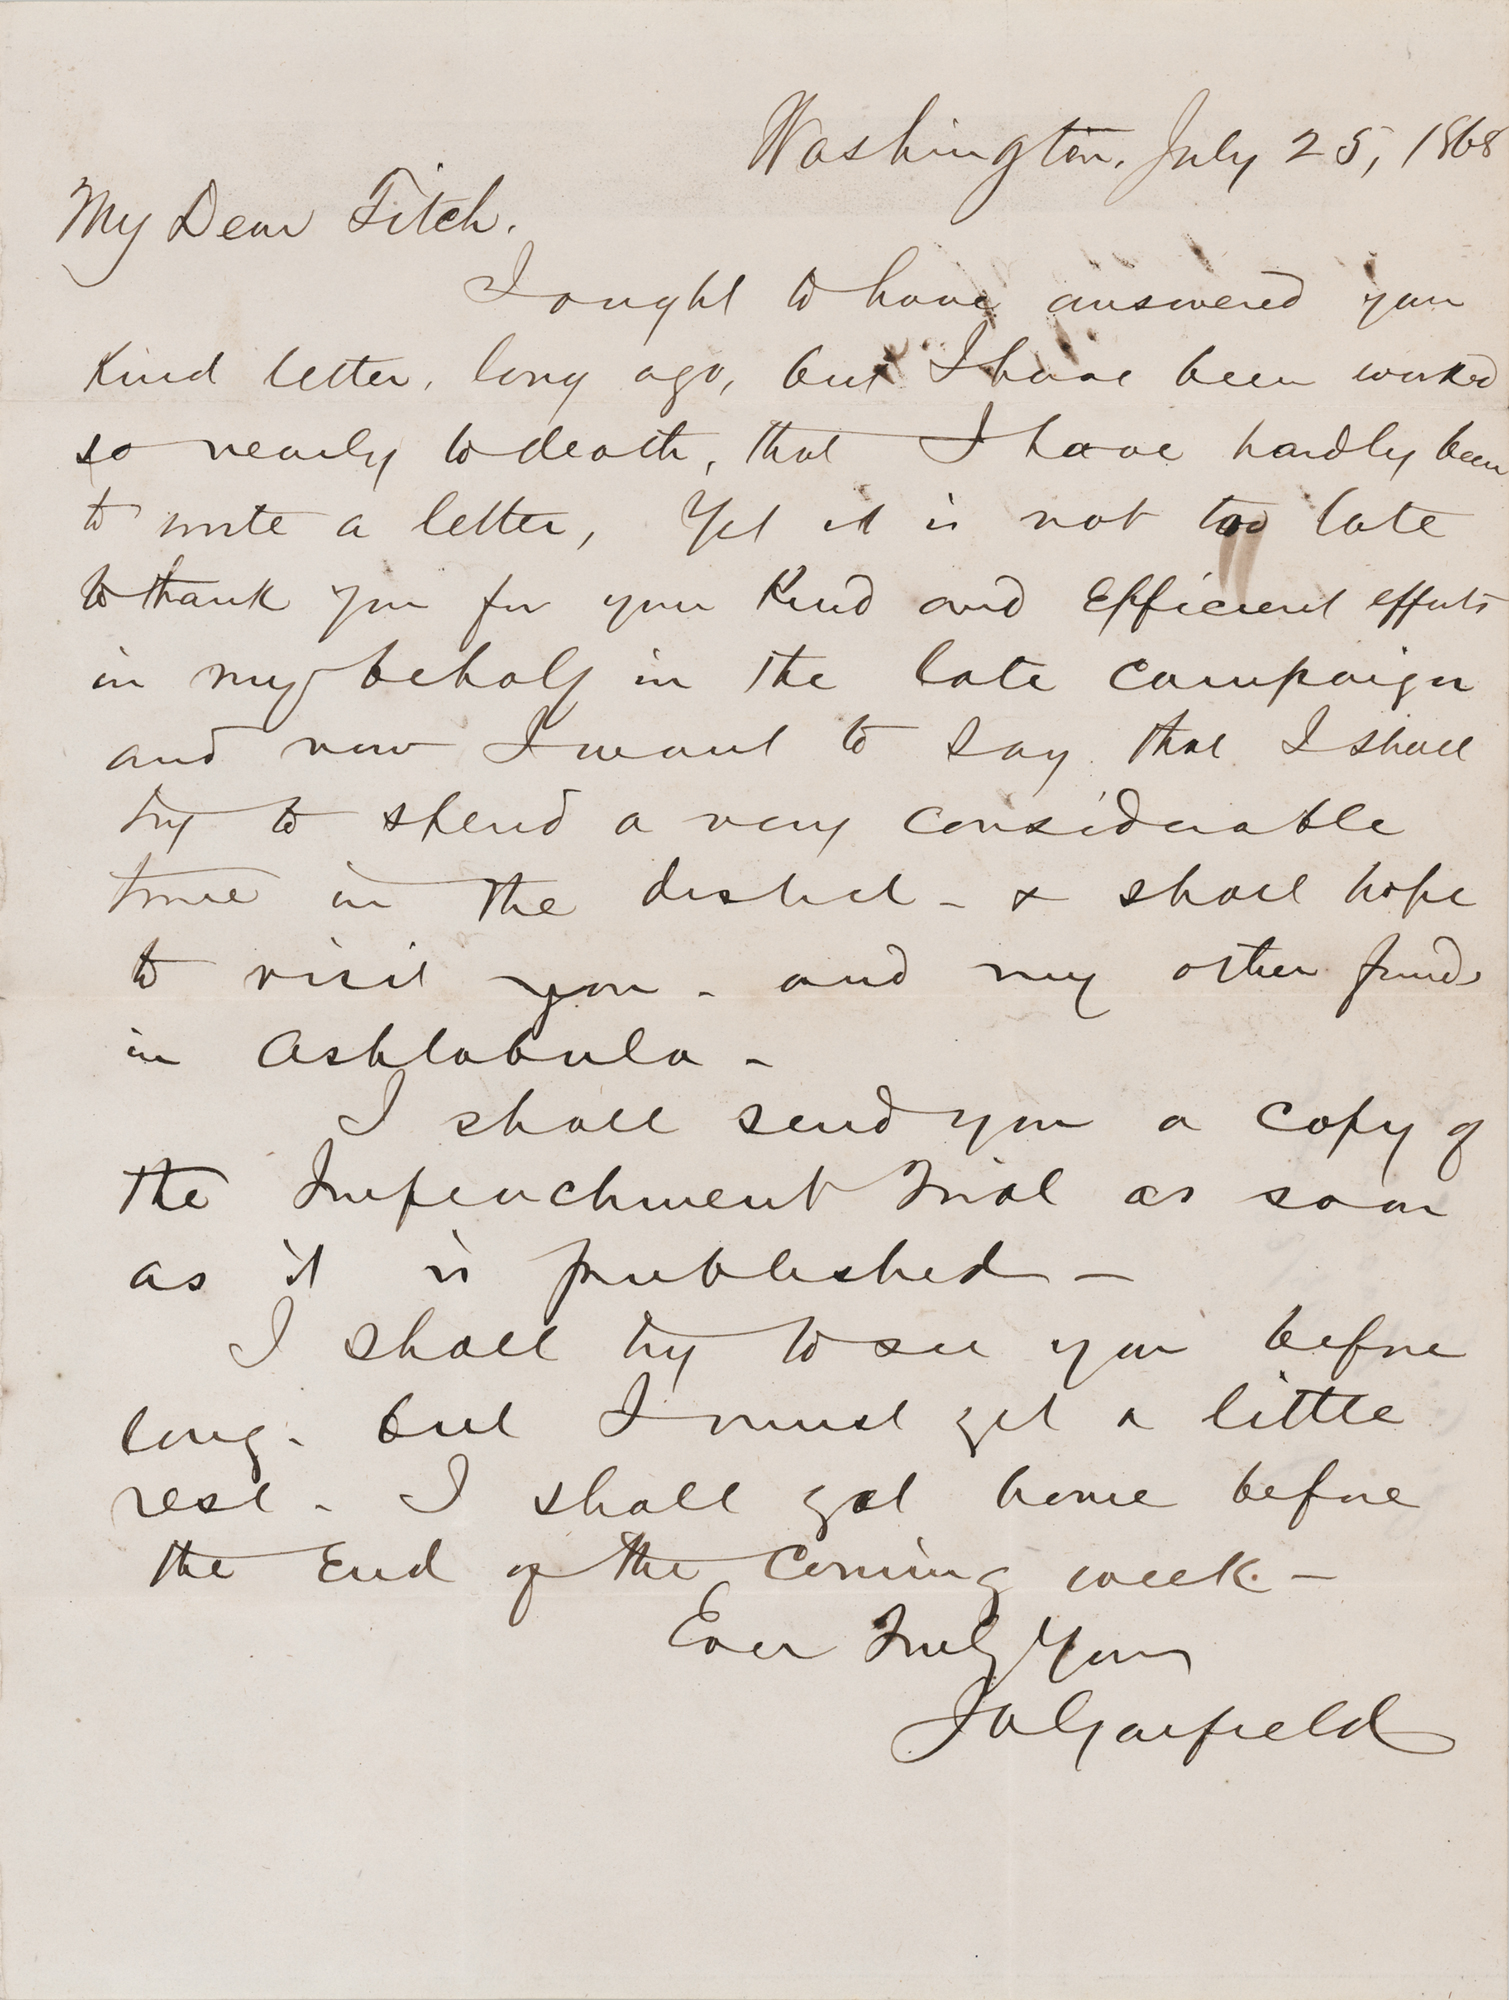 Washington, July 25, 1868
My Dear Fitch.
I ought to have answered your
kind letter, long ago, but I have been worked
so nearly to death, that I have hardly been
to write a letter, Yet it is not too late
to thank you for your kind and efficient efforts
in my behalf in the late campaign
and now I want to say that I shall
try to spend a very considerable
time in the district - & shall hope
to visit you - and my other friends
in Ashtabula -
I shall send you a copy of
the Impeachment Trial as soon
as it is published -
I shall try to see you before
long - but I must get a little
rest - I shall get home before
the End of the Coming week -
Ever Truly Yours
J A Garfield